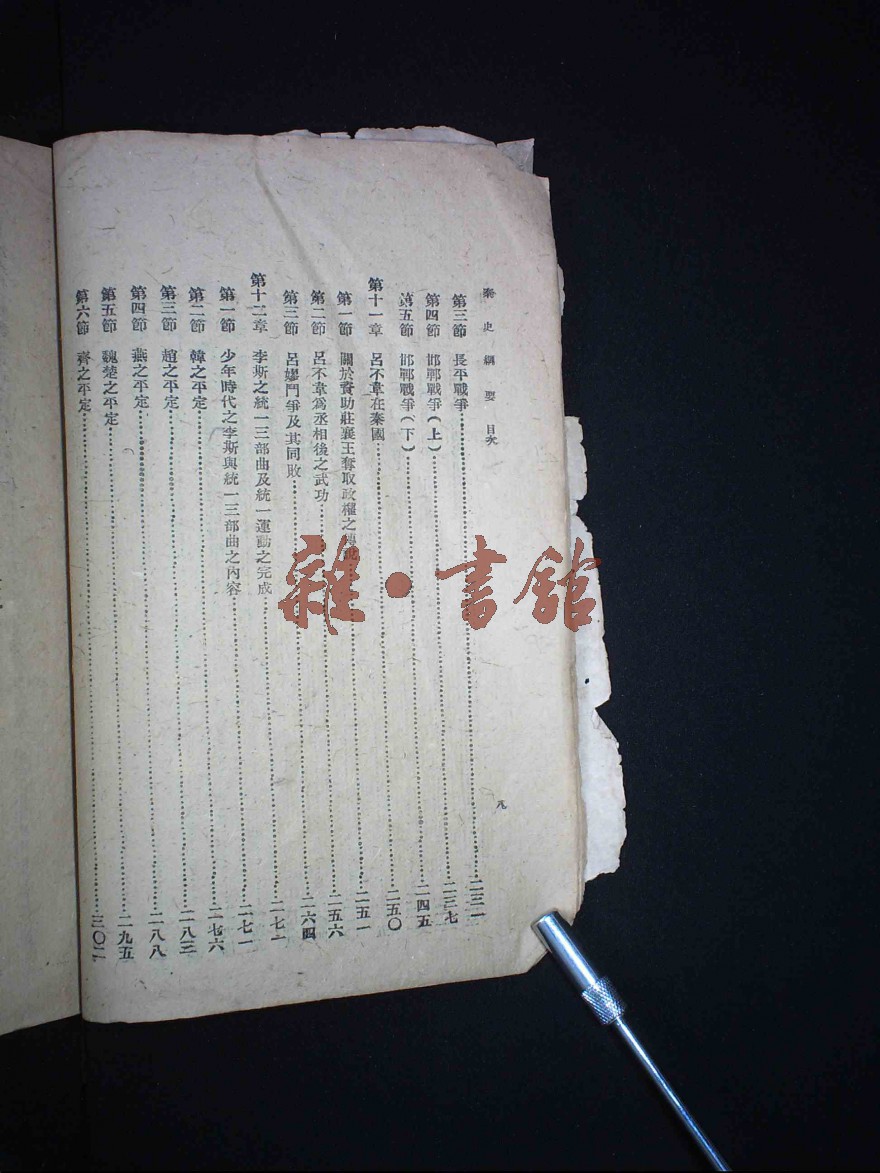 秦史綱要 目次
九
第三節 長平戰爭……二三一
第四節 邯鄲戰爭(上)……二三七
第五節 邯鄲戰爭(下)……二四五
第十一章 呂不韋在秦國……二五〇
第一節 關於資助莊襄王奪取政權之傳說……二五一
第二節 呂不韋爲丞相後之武功……二五六
第三節 呂嫪鬥爭及其同敗……二六四
第十二章 李斯之統一三部曲及統一運動之完成……二七一
第一節 少年時代之李斯與統一三部曲之內容……二七一
第二節 韓之平定……二七六
第三節 趙之平定……二八三
第四節 燕之平定……二八八
第五節 魏楚之平定……二九五
第六節 齊之平定……三〇二
雜·書館